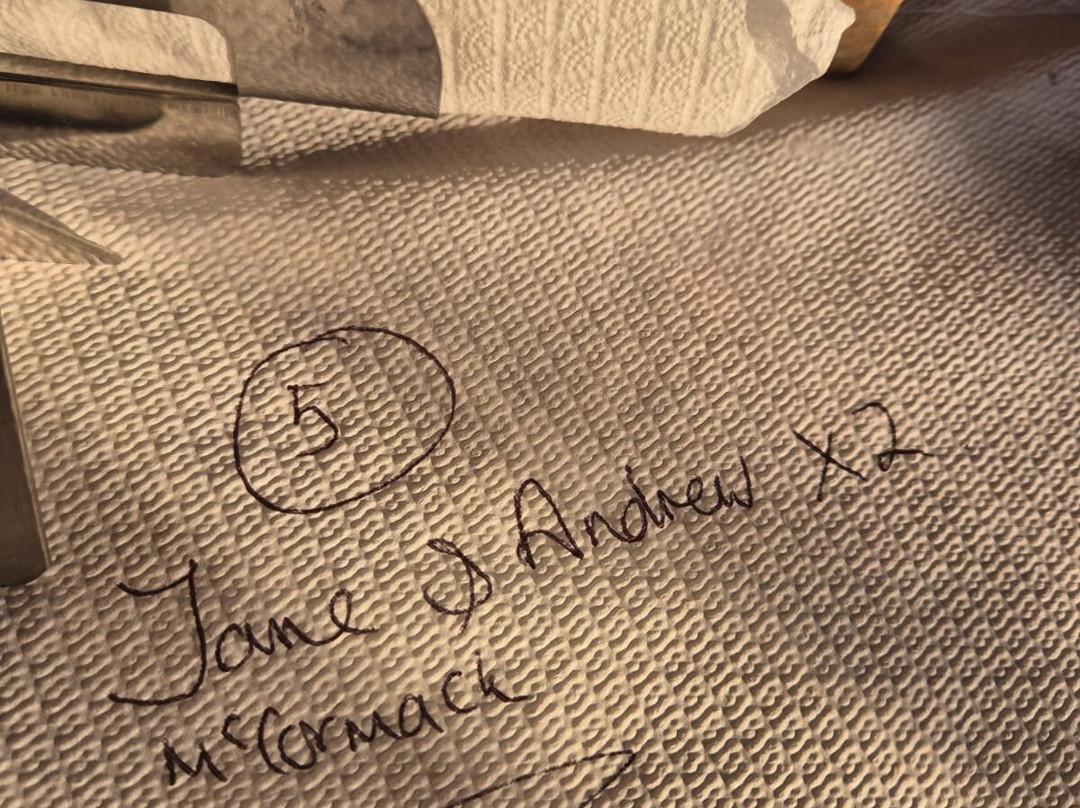 5
Jane & Andrew x2
McCormack